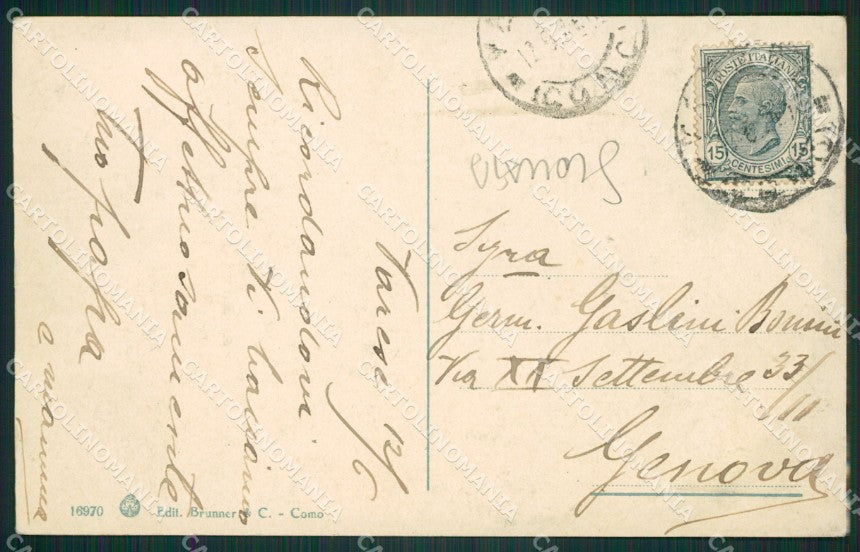 Varese 12/6
Ricordandovi
sempre ti baciamo
affettuosamente
tuo
e mamma
16970
Edit. Brunner & C. - Como
POSTE ITALIANE
15 15
CENTESIMI
(COMO)
Sig.ra
Germ. Gaslini Bonini
Via XX Settembre 33/11
Genova
CARTOLINOMANIA